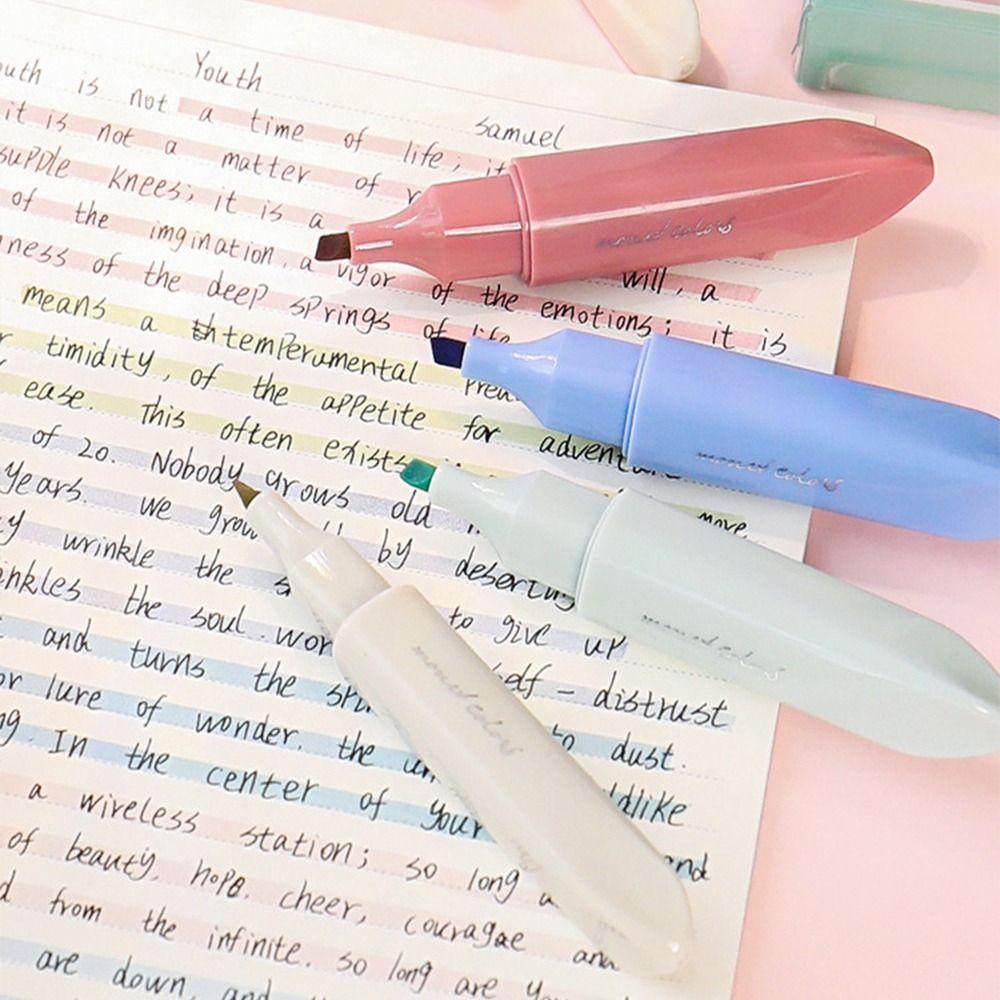 Youth
Samuel
outh is not a time of life; it
it is not a matter of r
supple knees; it is a will, a
of the imgination, a vigor of the emotions; it is
ness of the deep springs of life
means a temperumental
timidity, of the appetite for adventure
ease. This often exists
of 20. Nobody grows old move
years. we grow by deserting
wrinkle the s to give up
inkles the soul. wor self - distrust
and turns the to dust.
or lure of wonder. the dlike
In the center of your and
a wireless station; so long
of beauty, hope, cheer, couragae and
from the infinite. so long are you
are down, and the
monet colors
monet colors
monet colors
monet colors